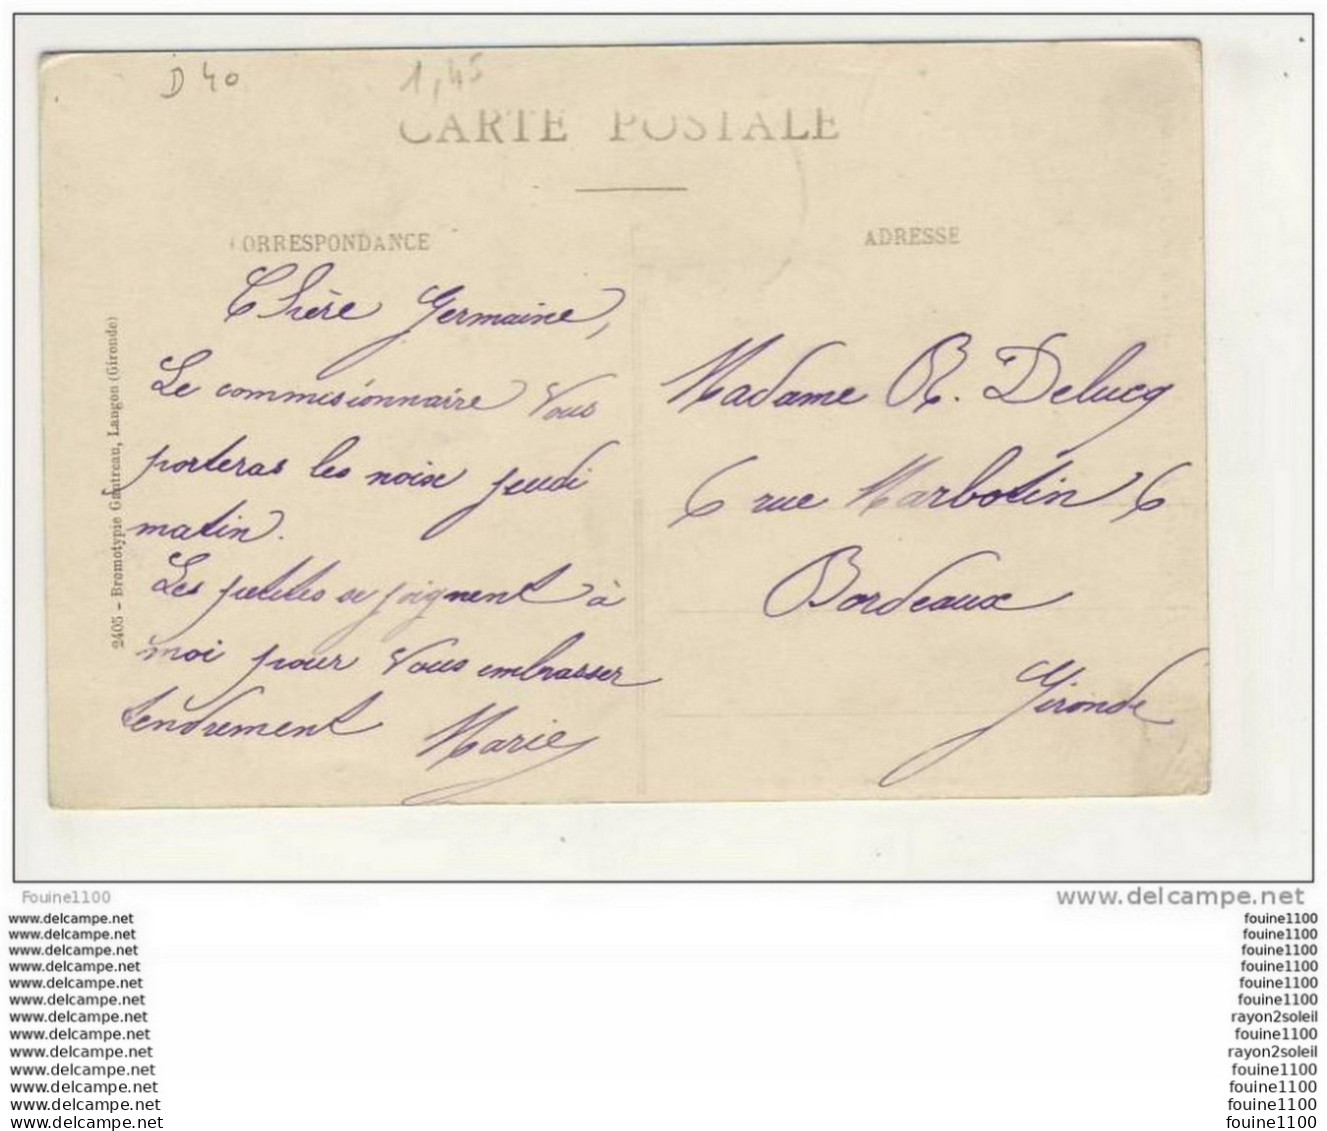 D 40
1,45
CARTE POSTALE
CORRESPONDANCE
ADRESSE
Chère Germaine,
Le commisionnaire vous
porteras les noix jeudi
matin.
Les petites se joignent à
moi pour vous embrasser
tendrement Marie
Madame R. Delucq
6 rue Marbotin 6
Bordeaux
Gironde
2405 - Bromotypie Gautreau, Langon (Gironde)
Fouine1100
www.delcampe.net
www.delcampe.net
fouine1100
www.delcampe.net
fouine1100
www.delcampe.net
fouine1100
www.delcampe.net
fouine1100
www.delcampe.net
fouine1100
www.delcampe.net
fouine1100
www.delcampe.net
rayon2soleil
www.delcampe.net
fouine1100
www.delcampe.net
rayon2soleil
www.delcampe.net
fouine1100
www.delcampe.net
fouine1100
www.delcampe.net
fouine1100
www.delcampe.net
fouine1100